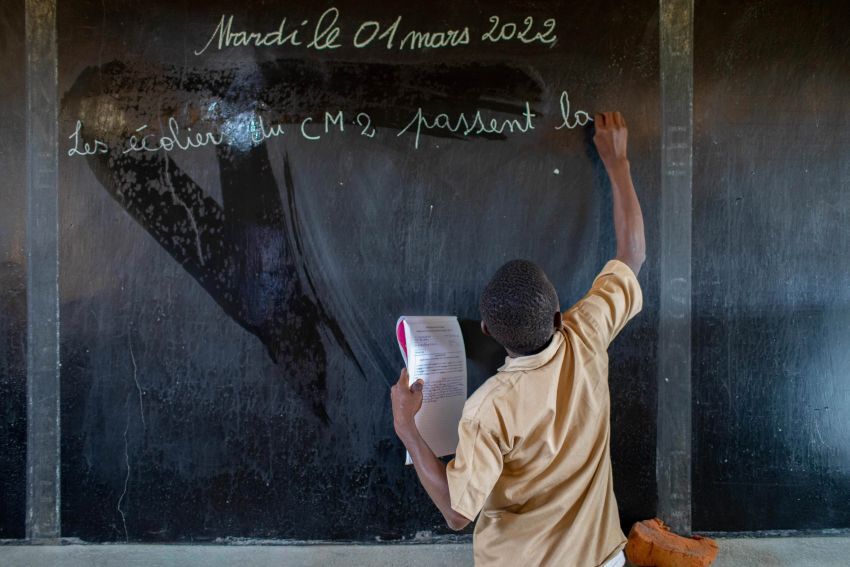 Mardi le 01 mars 2022
Les écoliers du CM2 passent la